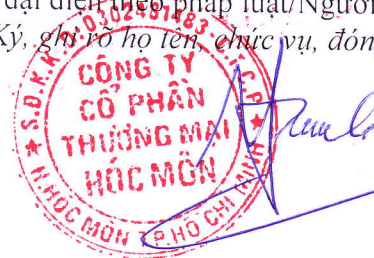 đại diện theo pháp luật/Người
Ký, ghi rõ họ tên, chức vụ, đón
S.Đ.K.K.D: 0302481483 - C.T.C.P
CÔNG TY
CỔ PHẦN
THƯƠNG MẠI
HÓC MÔN
H.HÓC MÔN - T.P.HỒ CHÍ MINH